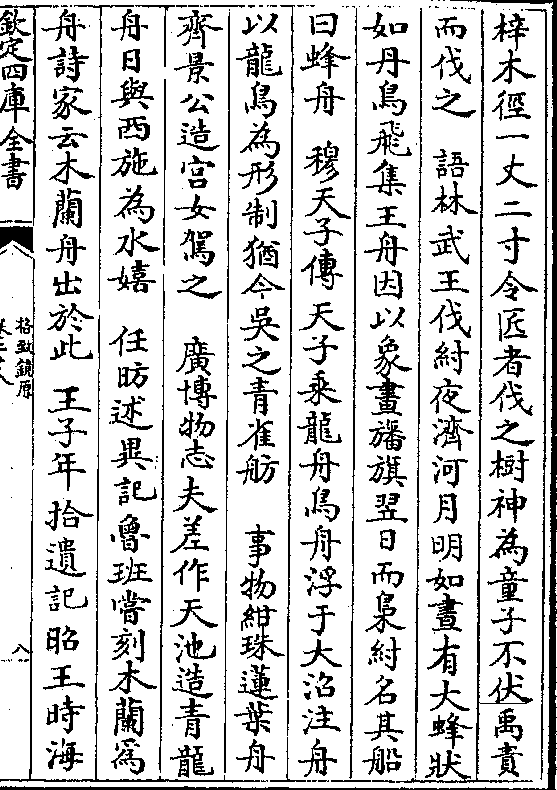 梓木徑一丈二寸令匠者伐之樹神為童子不伏禹責
而伐之　語林武王伐紂夜濟河月明如晝有大蜂狀
如丹鳥飛集王舟因以象畫旛旗翌日而梟紂名其船
曰蜂舟　穆天子傳天子乘龍舟鳥舟浮于大沼注舟
以龍鳥為形制猶今吳之青雀舫　事物紺珠蓮葉舟
齊景公造宮女駕之　廣博物志夫差作天池造青龍
舟日與西施為水嬉　任昉述異記魯班嘗刻木蘭為
舟詩家云木蘭舟出於此　王子年拾遺記昭王時海
欽定四庫全書
格致鏡原
八